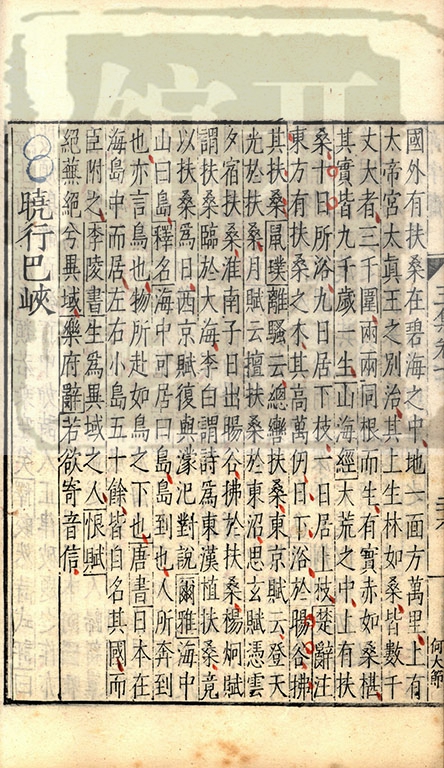 國外有扶桑在碧海之中地一面方萬里上有
太帝宮太真王之別治其上生林如桑皆數千
丈大者三千圍兩兩同根而生有實赤如桑椹
其實皆九千歲一生山海經大荒之中上有扶
桑十日所浴九日居下枝一日居上枝楚辭注
東方有扶桑之木其高萬仞日下浴於暘谷拂
其扶桑鼠璞離騷云總轡扶桑東京賦云登天
光於扶桑月賦云擅扶桑於東沼思玄賦憑雲
夕宿扶桑淮南子日出暘谷拂於扶桑楊炯賦
謂扶桑臨於大海李白謂詩爲東漢植扶桑竟
以扶桑爲日西京賦復與濛汜對說爾雅海中
山曰島釋名海中可居曰島島到也人所奔到
也亦言鳥也物所赴如鳥之下也唐書日本在
海島中而居左右小島五十餘皆自名其國而
臣附之李陵書生爲異域之人恨賦
絕蕪絕兮異域樂府辭若欲寄音信
曉行巴峽
何大節